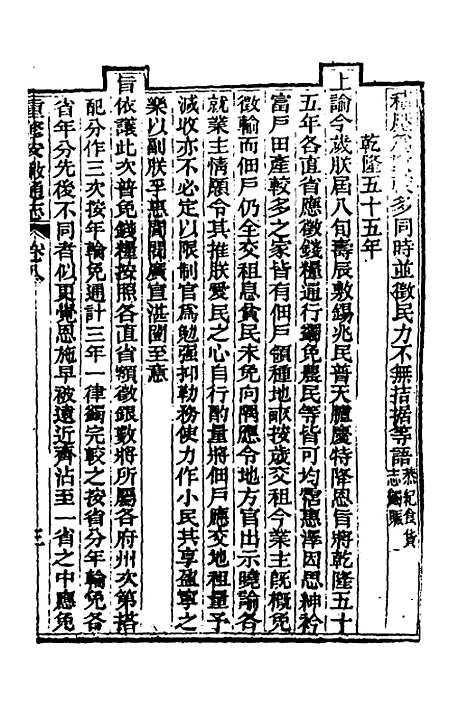 多同時並徵民力不無拮据等語恭紀食貨志蠲賑
乾隆五十五年
上諭今歲朕屆八旬壽辰敷錫兆民普天臚慶特降恩旨將乾隆五十
五年各直省應徵錢糧通行蠲免農民等皆可均霑惠澤因思紳衿
富戶田產較多之家皆有佃戶領種地畝按歲交租今業主旣槪免
徵輸而佃戶仍全交租息貧民未免向隅應令地方官出示曉諭各
就業主情願令其推朕愛民之心自行酌量將佃戶應交地租量予
減收亦不必定以限制官爲勉强抑勒務使力作小民共享盈寧之
樂以副朕孚惠閭閻廣宣湛闓至意
旨依議此次普免錢糧按照各直省額徵銀數將所屬各府州次第搭
配分作三次按年輪免通計三年一律蠲完較之按省分年輪免各
省年分先後不同者似更覺恩施早被遠近齊沾至一省之中應免
重修安徽通志 三